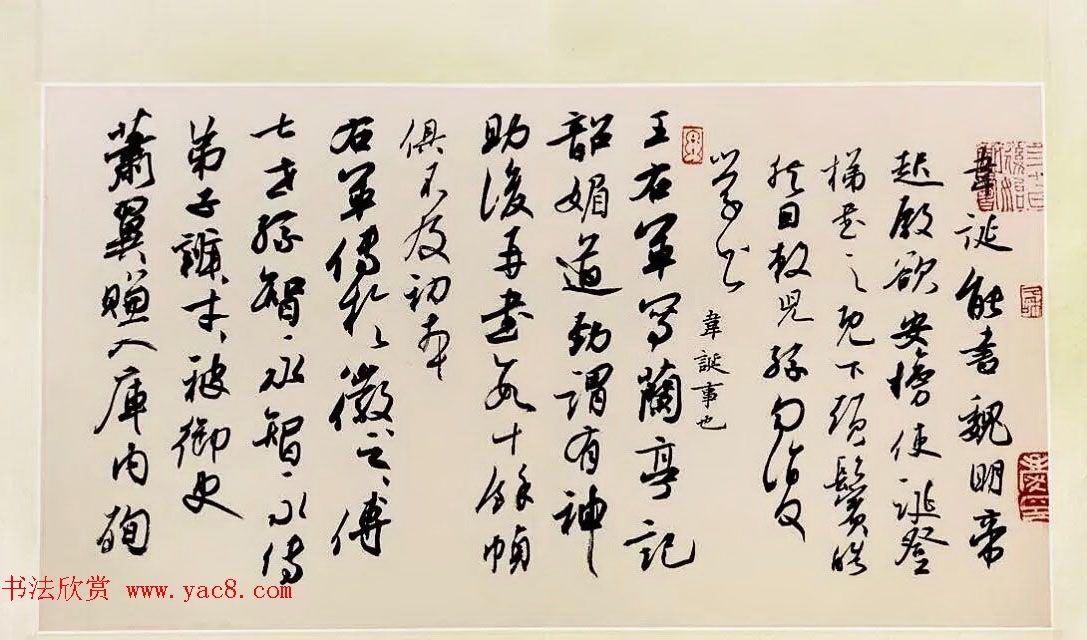 韋誕能書魏明帝
起殿欲安榜使誕登
梯書之既下頭鬢皓
然因敕兒孫勿復
學書
韋誕事也
王右軍寫蘭亭記
韶媚遒勁謂有神
助後再書數十餘幀
俱不及初本
右軍傳於徽之、傳
七世孫智永智永傳
弟子辯才、被御史
蕭翼賺入庫內殉
书法欣赏 www.yac8.com